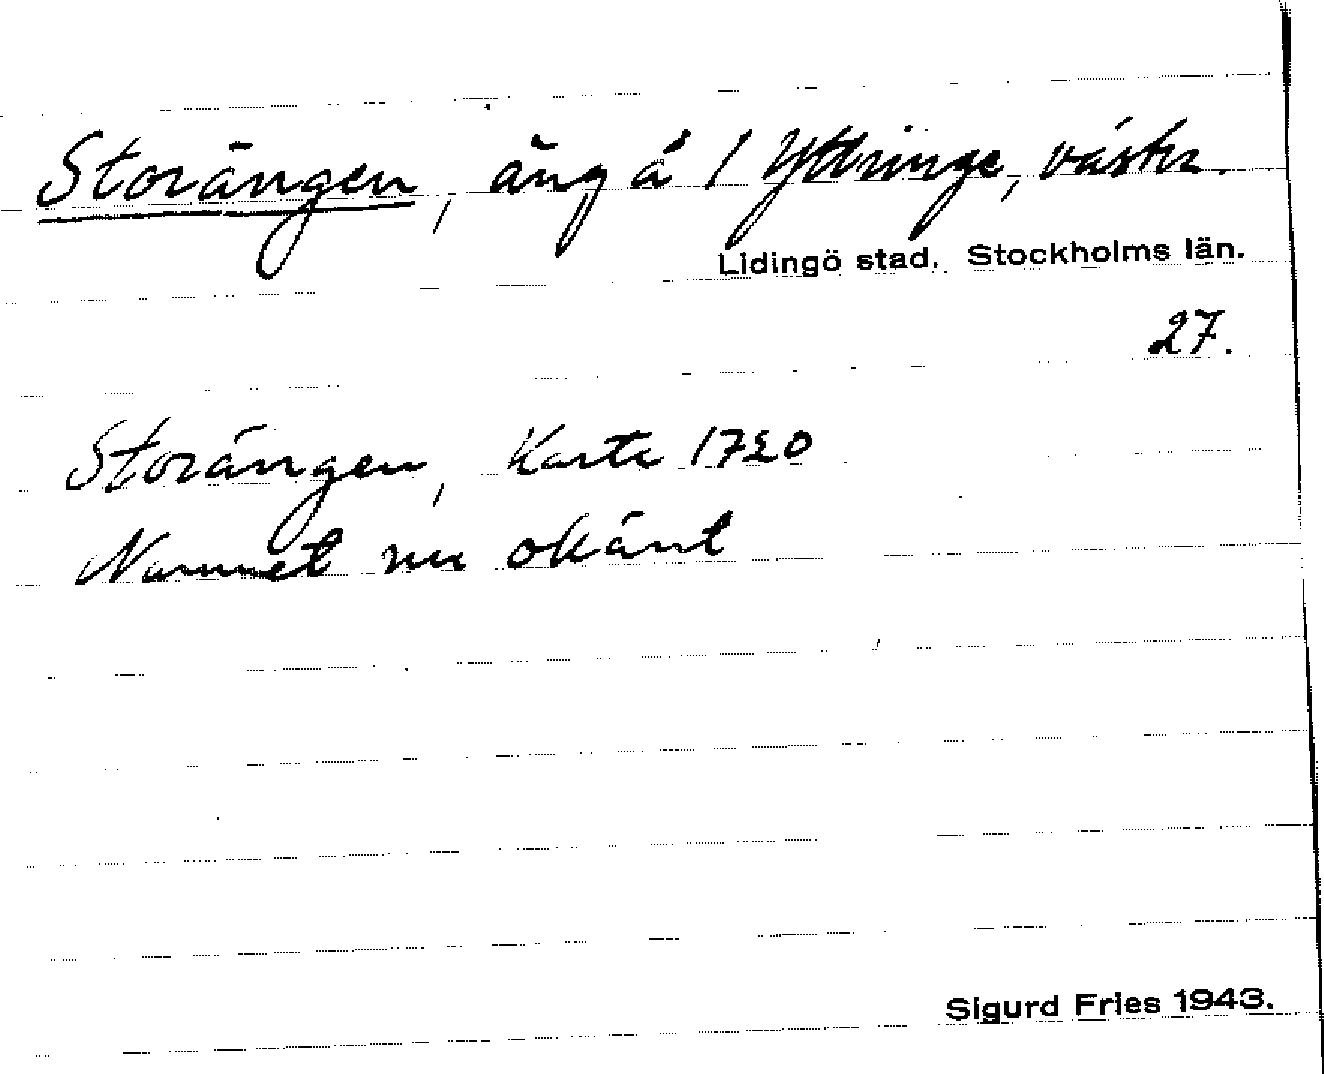 Storängen, äng å 1 Yttringe, västra.
Lidingö stad. Stockholms län.
27.
Storängen, Karta 1720
Namnet nu okänt
Sigurd Fries 1943.